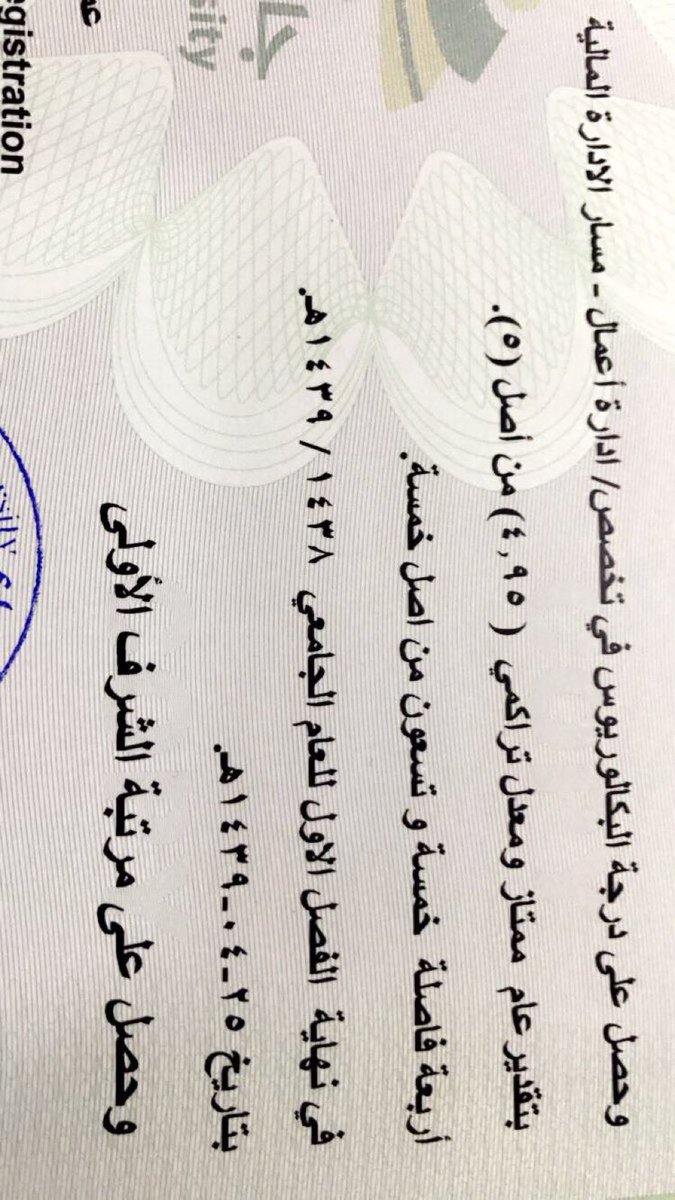 وحصل على درجة البكالوريوس في تخصص/ ادارة أعمال - مسار الادارة المالية
بتقدير عام ممتاز ومعدل تراكمي (٤,٩٥) من أصل (٥).
أربعة فاصلة خمسة و تسعون من اصل خمسة.
في نهاية الفصل الاول للعام الجامعي ١٤٣٨ / ١٤٣٩هـ.
بتاريخ ٢٥-٠٤-١٤٣٩هـ.
وحصل على مرتبة الشرف الأولى